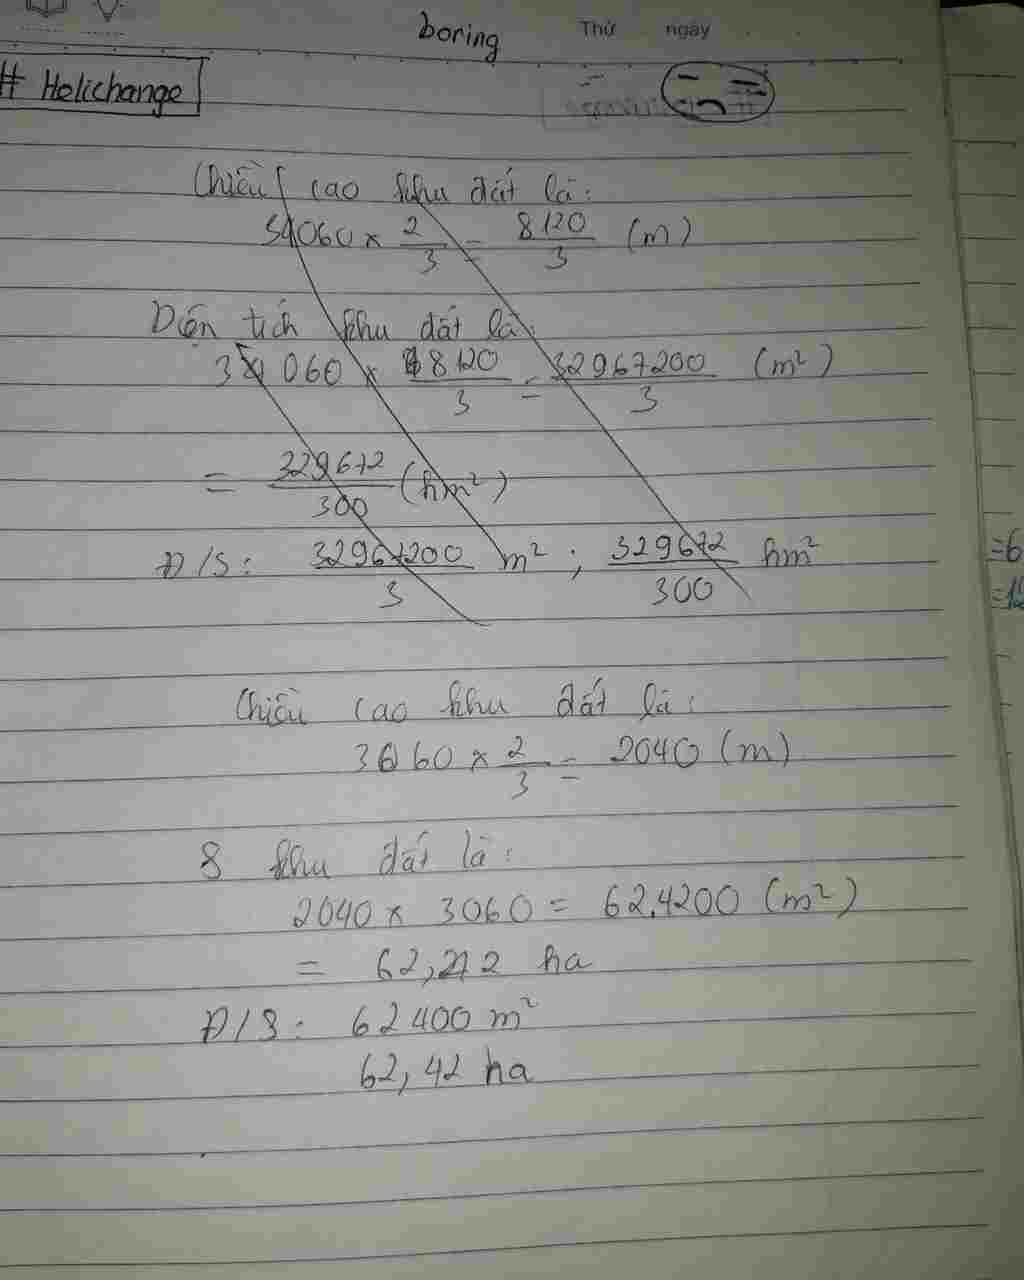 boring Thứ ngày
# Helichange
Chiều cao khu đất là:
34060 × 2/3 = 8120/3 (m)
Diện tích khu đất là:
34060 × 8120/3 = 32967200/3 (m²)
= 329672/300 (hm²)
Đ/S: 32967200/3 m² ; 329672/300 hm²
Chiều cao khu đất là:
3060 × 2/3 = 2040 (m)
S khu đất là:
2040 × 3060 = 62,4200 (m²)
= 62,272 ha
Đ/S: 62400 m²
62,42 ha
=6